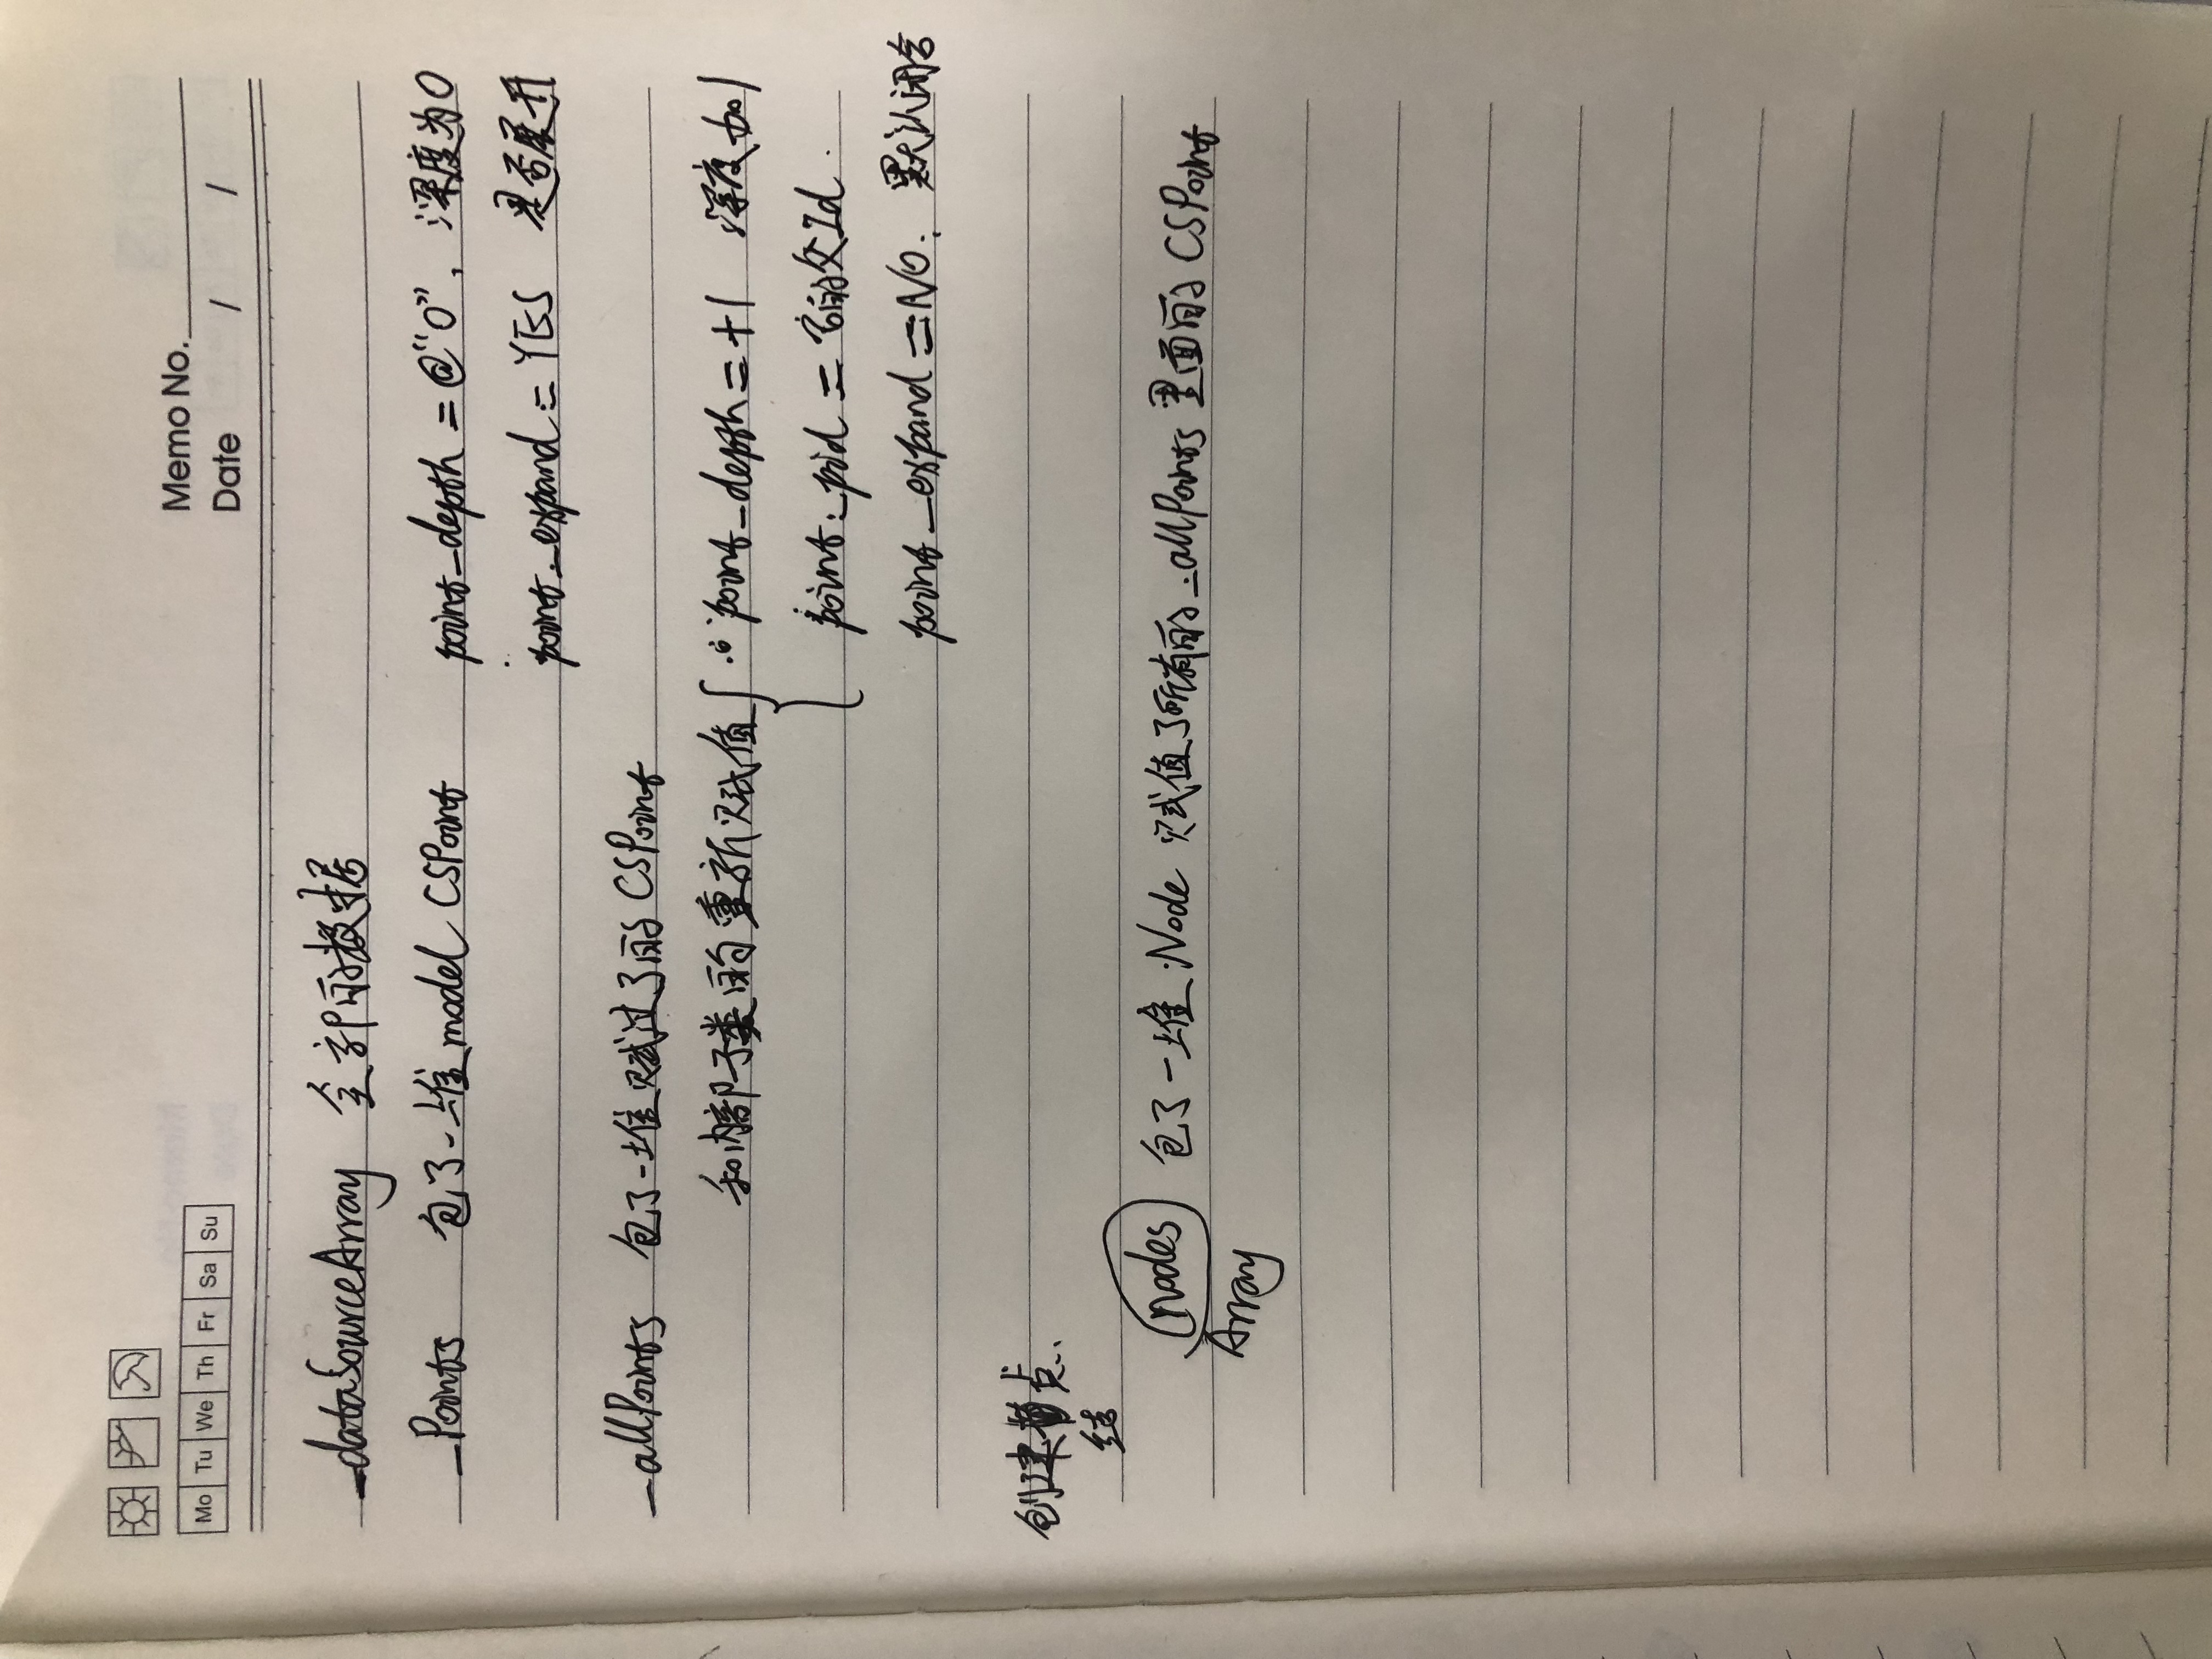 Mo Tu We Th Fr Sa Su
Memo No.
Date / /
_dataSourceArray 全部的数据
_Points 包了一堆model CSPoint point_depth = @"0", 深度为0
point._expand = YES 是否展开
_allPoints 包了一堆赋过了的 CSPoint
和内部子类的重新赋值 point_depth = +1 深度加1
point._pid = 它的父Id.
point_expand = NO. 默认闭合
创建 点.
结
nodes 包了一堆.Node 赋值了所有的_allPoints里面的 CSPoint
Array